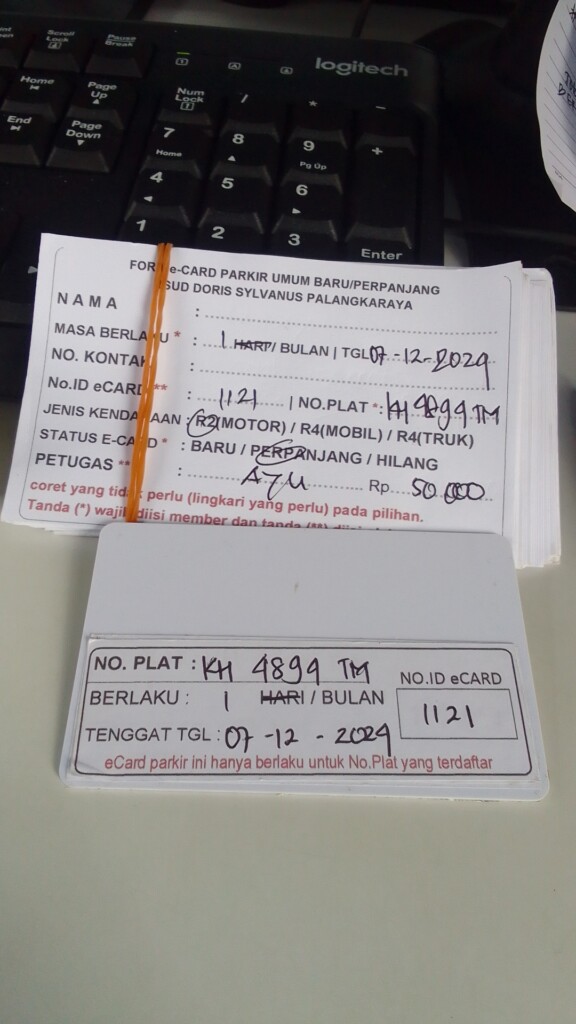 Scroll
Lock
Pause
Break
logitech
Home
Page
Up
Num
Lock
/
*
-
End
Page
Down
7
Home
8
9
Pg Up
+
4
5
6
1
2
3
Enter
e-CARD PARKIR UMUM BARU/PERPANJANG
SUD DORIS SYLVANUS PALANGKARAYA
NAMA :
MASA BERLAKU * : 1 HARI / BULAN | TGL 07-12-2024
NO. KONTAK :
No.ID eCARD ** : 1121 | NO.PLAT * : KH 4894 TM
JENIS KENDARAAN : R2(MOTOR) / R4(MOBIL) / R4(TRUK)
STATUS E-CARD * : BARU / PERPANJANG / HILANG
PETUGAS ** : AYU Rp 50.000
coret yang tidak perlu (lingkari yang perlu) pada pilihan.
Tanda (*) wajib diisi member dan tanda (**)
NO. PLAT : KH 4894 TM
NO.ID eCARD
BERLAKU : 1 HARI / BULAN
1121
TENGGAT TGL : 07-12-2024
eCard parkir ini hanya berlaku untuk No.Plat yang terdaftar